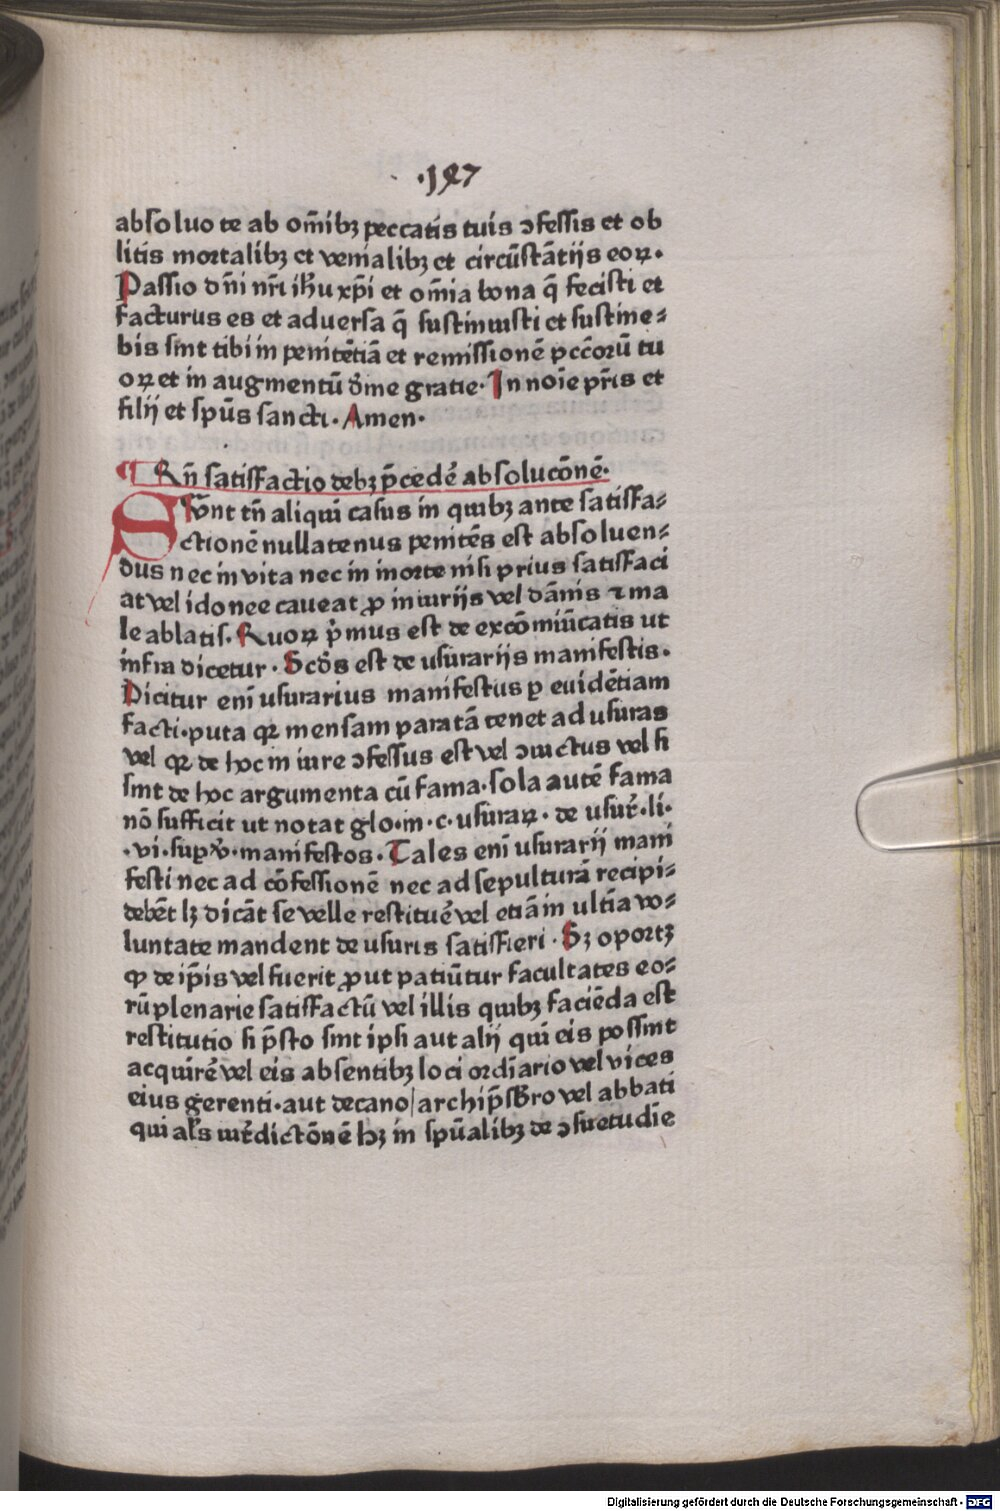 .197
absoluo te ab om̄ibꝫ peccatis tuis ɔfessis et ob
litis mortalibꝫ et venialibꝫ et circūstātijs eoꝝ.
Passio dn̄i nr̄i ih̄u xp̄i et om̄ia bona q̄ fecisti et
facturus es et aduersa q̄ sustinuisti et sustine⸗
bis sint tibi in penitētiā et remissionē pcc̄orū tu
oꝝ et in augmentū dīne gratie. In noīe pr̄is et
filij et spūs sancti. Amen.
¶ Qn̄ satisfactio debꝫ p̄cedē absolucōnē.
Sūnt tn̄ aliqui casus in quibꝫ ante satisfa⸗
ctionē nullatenus penitēs est absoluen⸗
dus nec in vita nec in morte nisi prius satisfaci
at vel idonee caueat ꝓ iniurijs vel dāmis ⁊ ma
le ablatis. Quoꝝ pͥmus est de excōmunīcatis ut
infra dicetur. Scds̄ est de usurarijs manifestis.
Dicitur enī usurarius manifestus ꝑ euidētiam
facti. puta qꝛ mensam paratā tenet ad usuras
vel qꝛ de hoc in iure ɔfessus est vel ɔuictus vel si
sint de hoc argumenta cū fama. sola autē fama
nō sufficit ut notat glo. in. c. usuraꝝ. de usur̄. li.
.vi. suꝑ v̄. manifestos. Tales enī usurarij mani
festi nec ad cōfessionē nec ad sepulturā recipi⸗
debēt lꝫ dicāt se velle restituē vel etiā in ultīa vo⸗
luntate mandent de usuris satisfieri. Sꝫ oportꝫ
ꝙ de ip̄is vel fuerit ꝓut patiūtur facultates eo⸗
rū plenarie satisfactū vel illis quibꝫ faciēda est
restitutio si p̄sto sint ipsi aut alij qui eis possint
acquirē vel eis absentibꝫ loci ordīario vel vices
eius gerenti. aut decano/ archip̄sbr̄o vel abbati
qui al̄s iur̄dictōnē hꝫ in spūalibꝫ de ɔsuetudīe
Digitalisierung gefördert durch die Deutsche Forschungsgemeinschaft - DFG